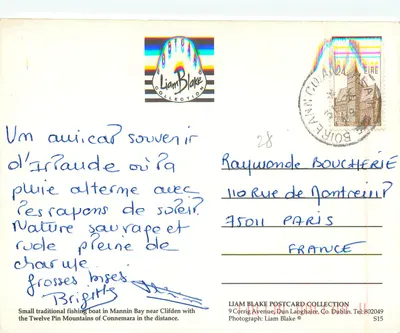 Liam Blake
COLLECTION
EIRE
Un amical souvenir
d'Irlande où la
pluie alterne avec
les rayons de soleil.
Nature sauvage et
rude pleine de
charme.
Grosses bises
Brigitte
28
Raymonde BOUCHERIE
110 Rue de Montreuil
75011 PARIS
FRANCE
Small traditional fishing boat in Mannin Bay near Clifden with
the Twelve Pin Mountains of Connemara in the distance.
LIAM BLAKE POSTCARD COLLECTION
9 Corrig Avenue, Dun Laoghaire, Co. Dublin. Tel: 802049
Photograph: Liam Blake ©
S15